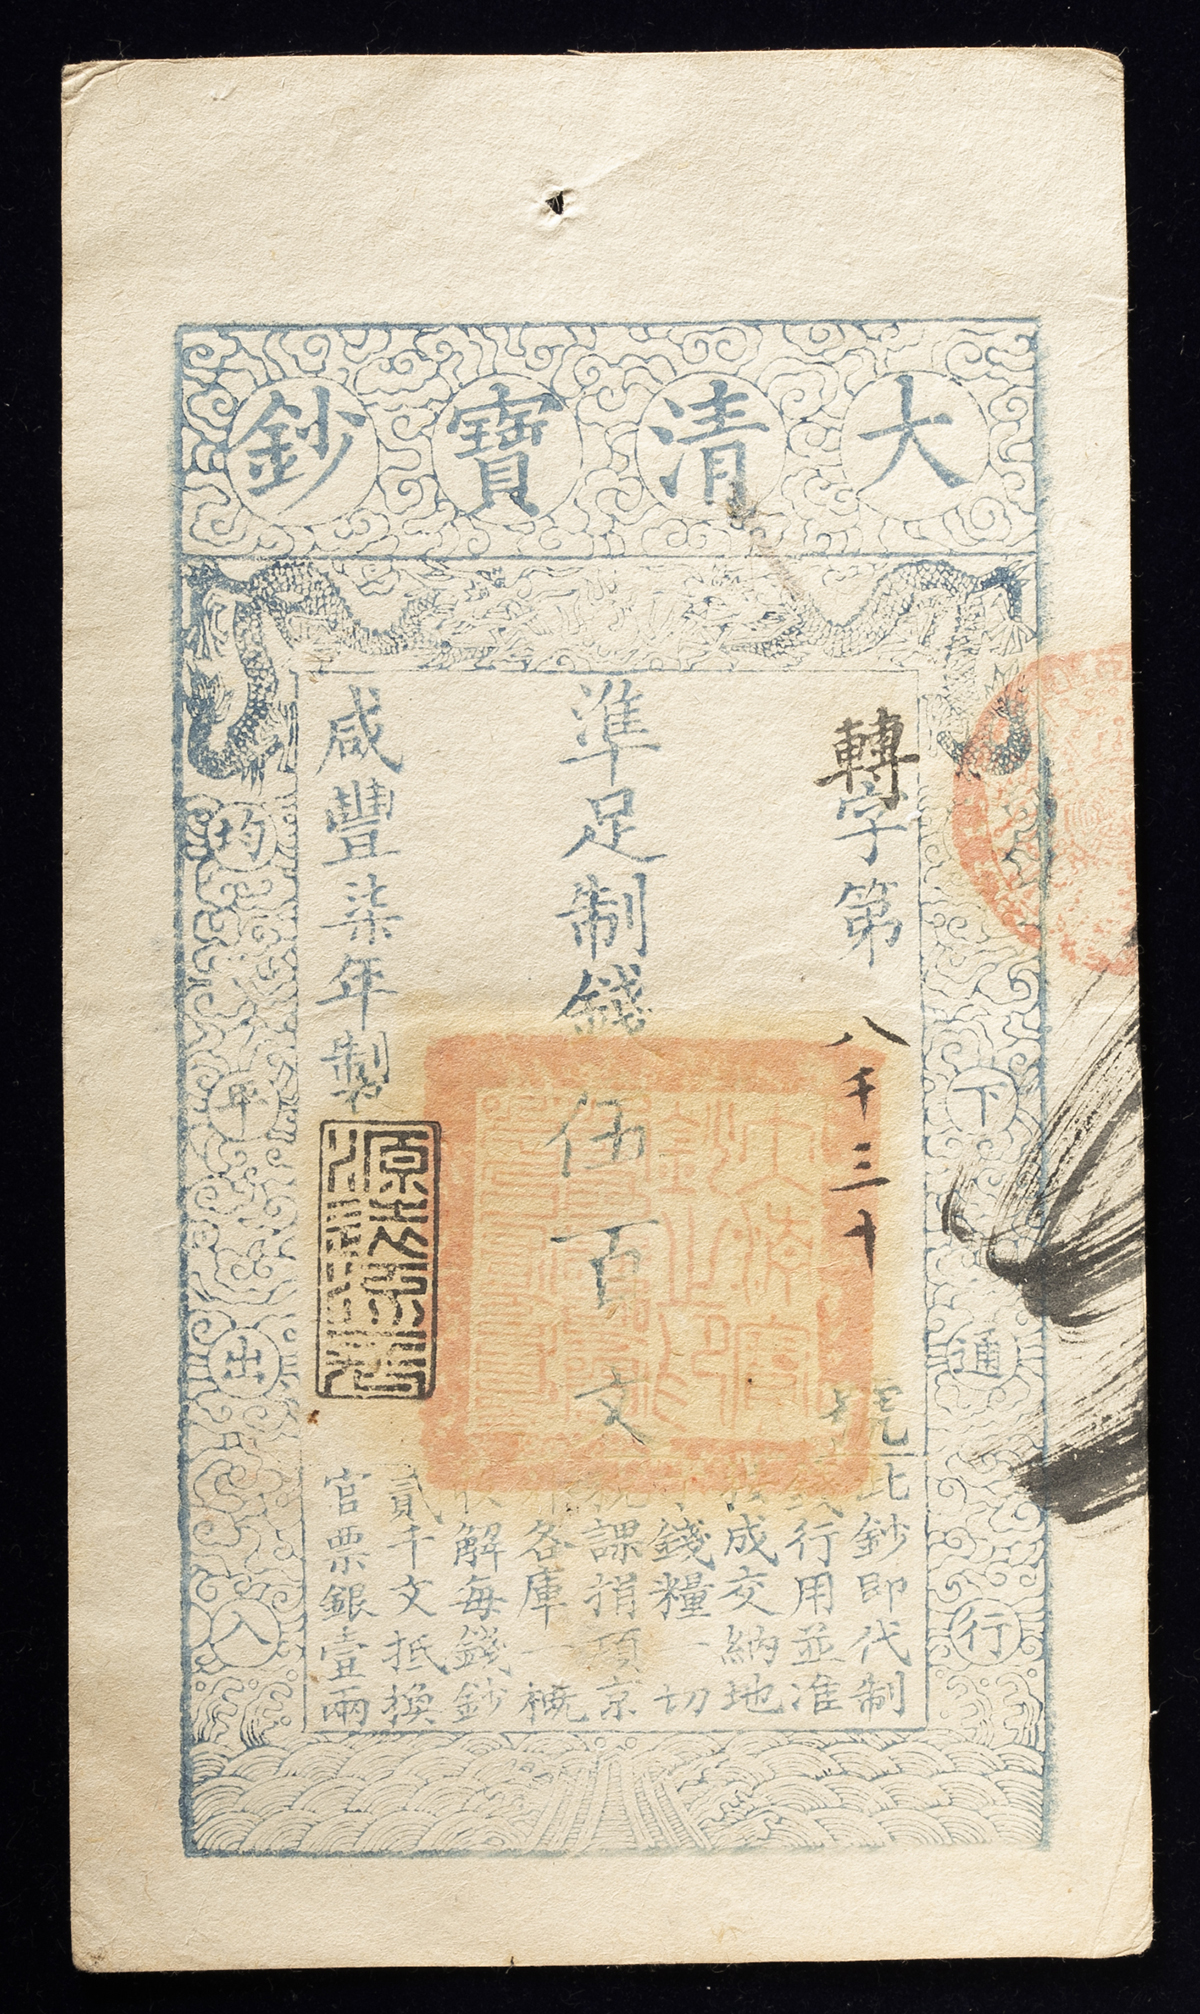 大清寶鈔
轉字第八千三十號
準足制錢伍百文
咸豐柒年製
下通行
均平出入
此鈔即代制
錢行用並准
按成交納地
丁錢糧一切
稅課捐項京
外各庫一概
收解每錢鈔
貳千文抵換
官票銀壹兩